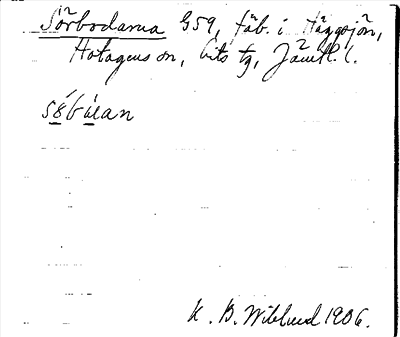 Sörbodarna G59, fäb. i Häggsjön,
Hotagens sn, Lits tg, Jämtl. l.
søbúan
K. B. Wiklund 1906.